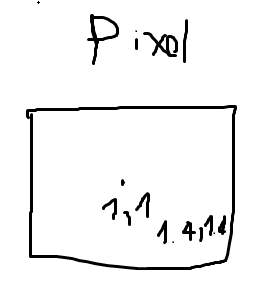 Pixel
1,1
1.4,1.4